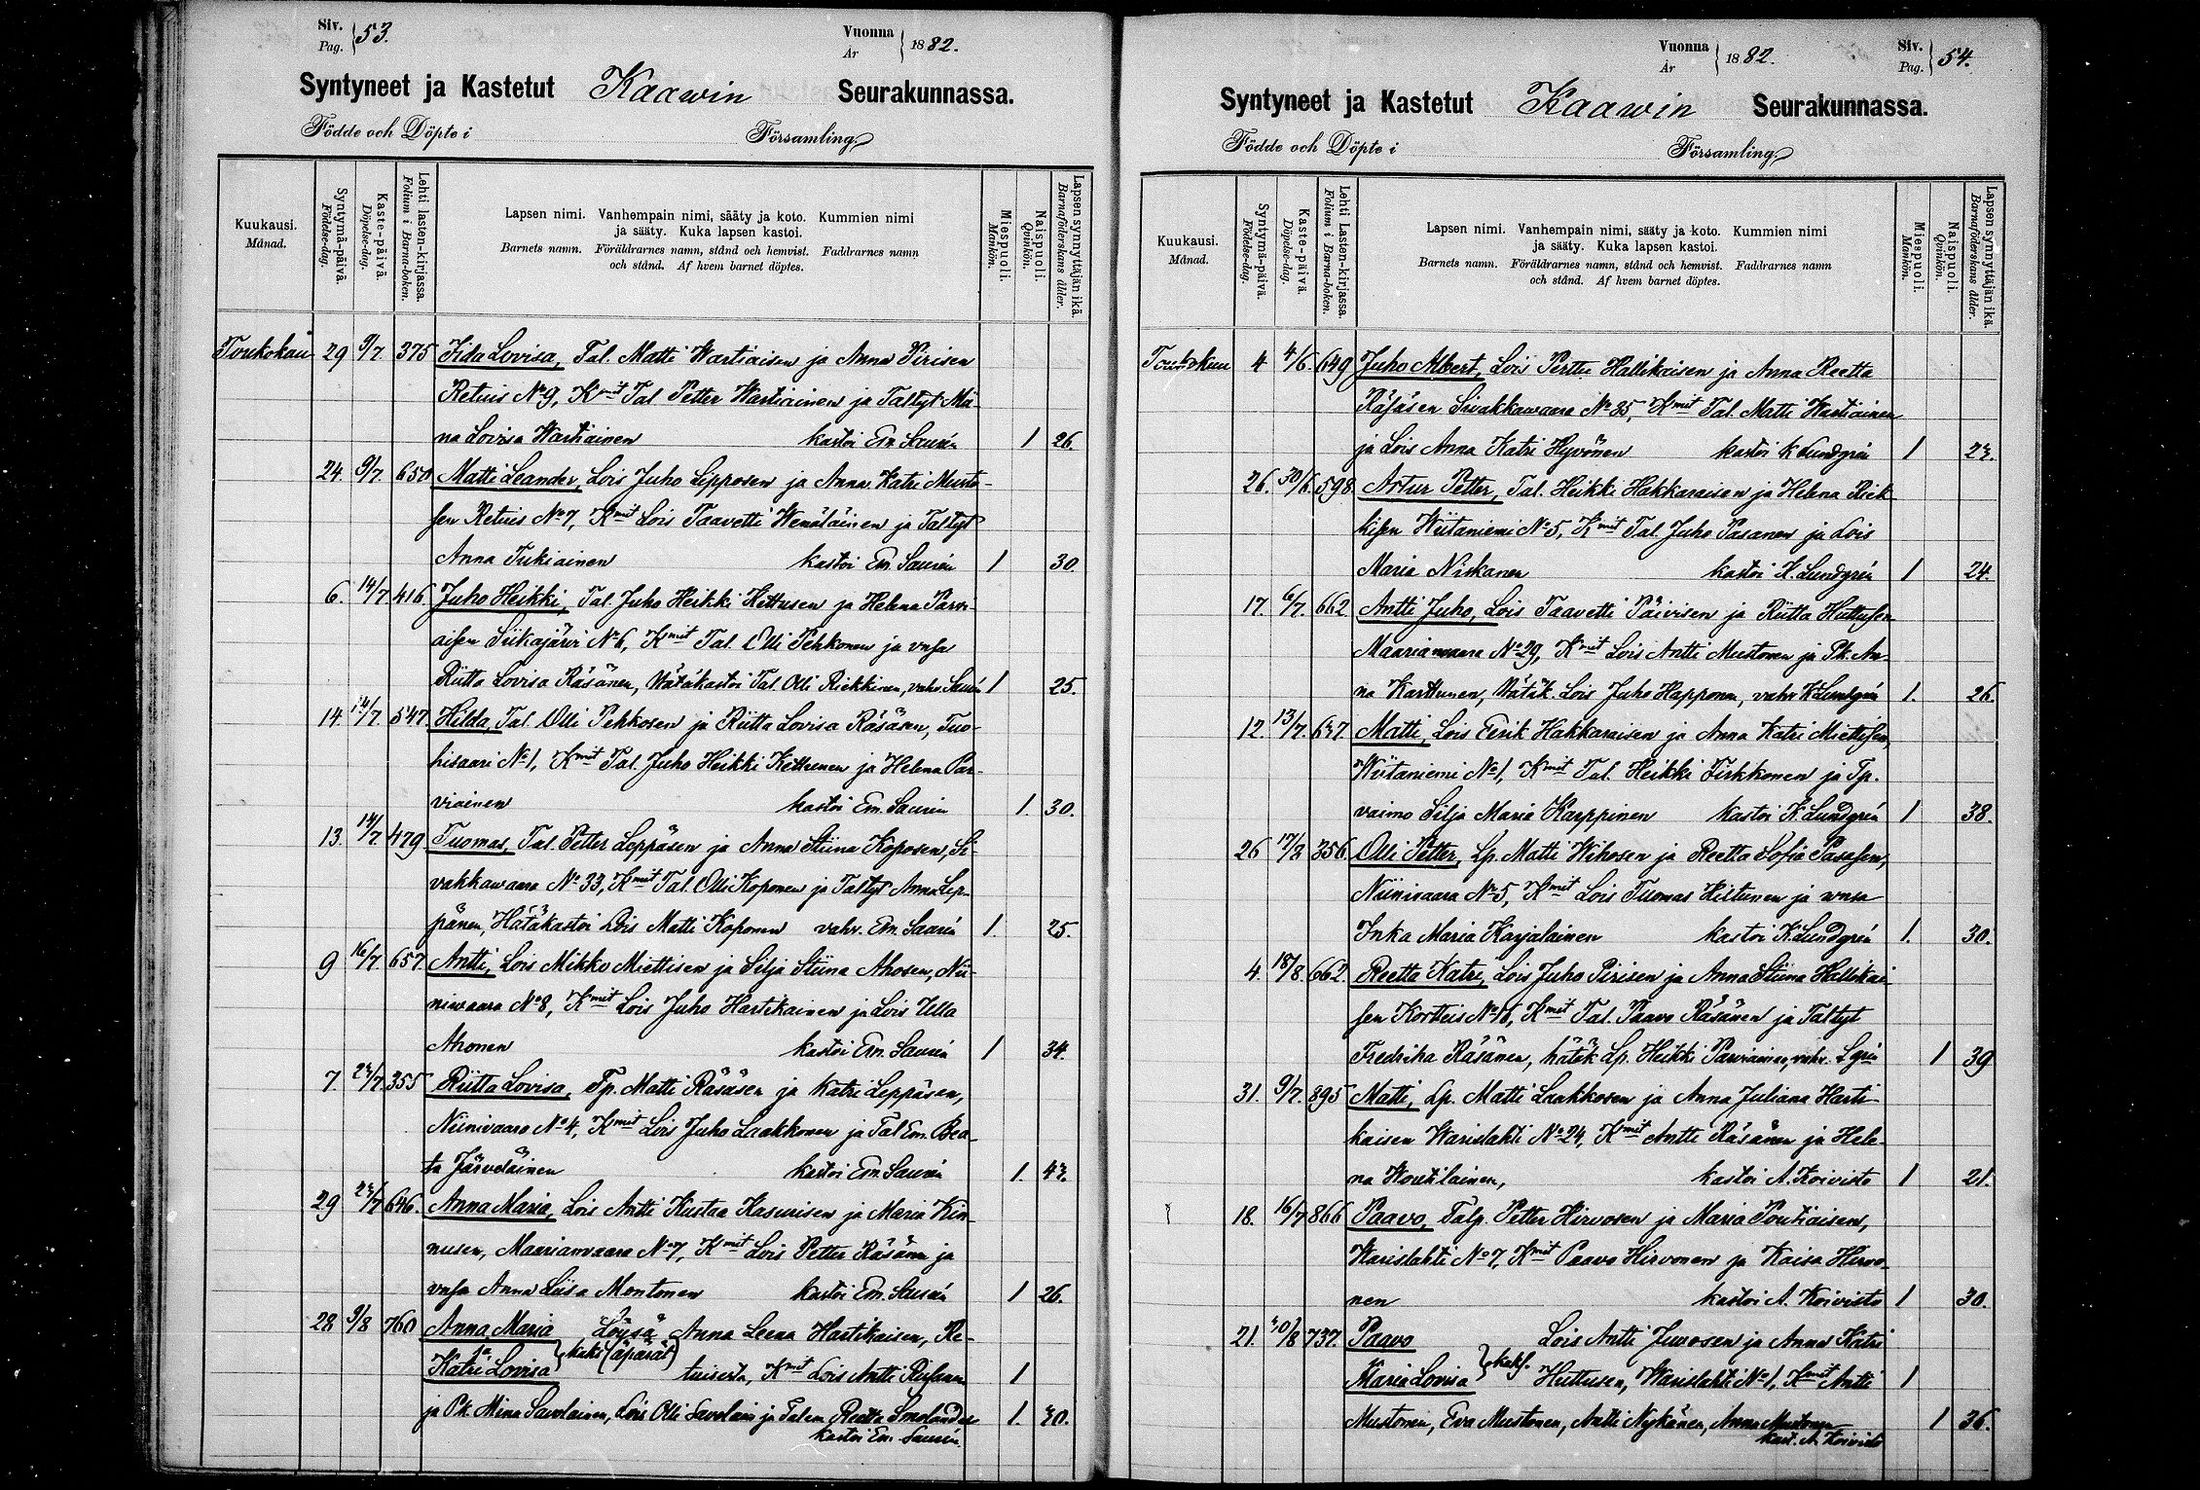 Siv. 53.
Pag.
Vuonna 1882.
År
Syntyneet ja Kastetut Kaawin Seurakunnassa.
Födde och Döpte i Församling
Kuukausi.
Månad.
Syntymä-päivä.
Födelse-dag.
Kaste-päivä.
Döpelse-dag.
Lehti lasten-kirjassa.
Folium i Barna-boken.
Lapsen nimi. Vanhempain nimi, sääty ja koto. Kummien nimi
ja sääty. Kuka lapsen kastoi.
Barnets namn. Föräldrarnes namn, stånd och hemvist. Faddrarnes namn
och stånd. Af hvem barnet döptes.
Miespuoli.
Mankön.
Naispuoli.
Qvinkön.
Lapsen synnyttäjän ikä.
Barnaföderskans ålder.
Toukokuu 29 9/7 375 Iida Lovisa, Tal. Matti Wartiaisen ja Anna Pirisen
Retuis No 9, Kmit Tal Petter Wartiainen ja Taltyt Mi-
na Lovisa Wartiainen kastoi Em. Saurén 1 26.
24. 9/7. 650 Matti Leander, Lois Juho Lipposen ja Anna Katri Musto-
sen Retuis No 7, Kmit Lois Taavetti Wenäläinen ja Taltyt
Anna Tukiainen kastoi Em. Saurén 1 30.
6. 14/7 416. Juho Heikki, Tal. Juho Heikki Kettusen ja Helena Parvi-
aisen Siikajärvi No 6, Kmit Tal. Olli Pehkonen ja vmsa
Riitta Lovisa Räsänen, Hätäkastoi Tal Olli Riekkinen, vahv. Saurén 1 25.
14. 14/7. 547. Hilda, Tal. Olli Pehkosen ja Riitta Lovisa Räsäsen, Tuo-
hisaari No 1, Kmit Tal. Juho Heikki Kettunen ja Helena Par-
viainen kastoi Em. Saurén 1. 30.
13. 14/7 479 Tuomas, Tal. Petter Leppäsen ja Anna Stiina Koposen, Si-
vakkawaara No 33, Kmit Tal. Olli Koponen ja Taltyt Anna Lep-
pänen, Hätäkastoi Lois Matti Koponen vahv. Em. Saurén 1. 25.
9 16/7 657 Antti, Lois Mikko Miettisen ja Silja Stiina Ahosen, Nii-
nivaara No 8, Kmit Lois Juho Hartikainen ja Lois Ulla
Ahonen kastoi Em. Saurén 1 34.
7. 23/7. 355 Riitta Lovisa, Tp. Matti Räsäsen ja Katri Leppäsen,
Niinivaara No 4, Kmit Lois Juho Laakkonen ja Tal Em. Bea-
ta Järveläinen kastoi Em. Saurén 1. 43.
29 23/7 646. Anna Maria, Lois Antti Kustaa Kasurisen ja Maria Kin-
nusen, Maarianvaara No 7, Kmit Lois Petter Räsänen ja
vmsa Anna Liisa Montonen kastoi Em. Saurén 1 26.
28 9/8 760 Anna Maria Löysä Anna Leena Hartikaisen, Re-
ja Katri Lovisa kaks (äpärät) tuisesta, Kmit Lois Antti 1
ja Pt. Mina Savolainen, Lois Olli Savolain ja Talem Reetta Smolander 1. 30.
kastoi Em. Saurén.
Vuonna 1882.
År
Siv. 54.
Pag.
Syntyneet ja Kastetut Kaawin Seurakunnassa.
Födde och Döpte i Församling
Kuukausi.
Månad.
Syntymä-päivä.
Födelse-dag.
Kaste-päivä.
Döpelse-dag.
Lehti Lasten-kirjassa.
Folium i Barna-boken.
Lapsen nimi. Vanhempain nimi, sääty ja koto. Kummien nimi
ja sääty. Kuka lapsen kastoi.
Barnets namn. Föräldrarnes namn, stånd och hemvist. Faddrarnes namn
och stånd. Af hvem barnet döptes.
Miespuoli.
Mankön.
Naispuoli.
Qvinkön.
Lapsen synnyttäjän ikä.
Barnaföderskans ålder.
Toukokuu 4 4/6. 649 Juho Albert, Lois Perttu Hallikaisen ja Anna Reetta
Räsäsen Sivakkawaara No 35, Kmit Tal. Matti Wartiainen
ja Lois Anna Katri Hyvönen kastoi K Lundgrén 1 23.
26. 30/6. 598. Artur Petter, Tal. Heikki Hakkaraisen ja Helena Riek-
kisen Wiitaniemi No 5, Kmit Tal. Juho Pasanen ja Lois
Maria Niskanen kastoi K. Lundgrén 1 24.
17. 6/7. 662 Antti Juho, Lois Taavetti Päivisen ja Riitta Huttusen
Maarianvaara No 29, Kmit Lois Antti Mustonen ja Pt. An-
na Karttunen, Hätäk. Lois Juho Happonen, vahv. K. Lundgrén 1. 26.
12. 13/7. 637 Matti, Lois Eerik Hakkaraisen ja Anna Katri Miettisen,
Wiitaniemi No 1, Kmit Tal. Heikki Tirkkonen ja Tp.
vaimo Silja Maria Karppinen kastoi K. Lundgrén 1 38.
26 17/8 356. Olli Petter, Lp. Matti Wihosen ja Reetta Sofia Pasasen,
Niinivaara No 5, Kmit Lois Tuomas Hiltunen ja vmsa
Inka Maria Karjalainen kastoi K. Lundgrén 1. 30.
4. 18/8. 662. Reetta Katri, Lois Juho Pirisen ja Anna Stiina Hallikai-
sen Kortteis No 16, Kmit Tal. Paavo Räsänen ja Taltyt
Fredriika Räsänen, hätäk Lp. Heikki Parviainen, vahv. Lgrén 1 39
31. 9/7. 895 Matti, Lp. Matti Laakkosen ja Anna Juliana Harti-
kaisen Warislahti No 24, Kmit Antti Räsänen ja Hele-
na Woutilainen, kastoi A. Koivisto 1 21.
18. 16/7 866 Paavo, Talp. Petter Hirvosen ja Maria Poutiaisen,
Warislahti No 7, Kmit Paavo Hirvonen ja Kaisa Hirvo-
nen kastoi A. Koivisto 1 30.
21. 20/8 737. Paavo Lois Antti Juvosen ja Anna Katri
Maria Lovisa kaks. Huttusen, Warislahti No 1, Kmit Antti 1
Mustonen, Eva Mustonen, Antti Nykänen, Anna Mustonen 1 36.
kast. A. Koivisto